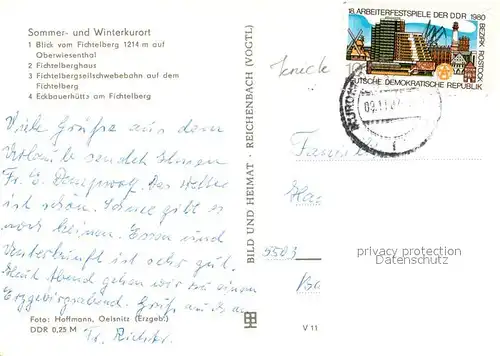 Sommer- und Winterkurort
1 Blick vom Fichtelberg 1214 m auf
Oberwiesenthal
2 Fichtelberghaus
3 Fichtelbergseilschwebebahn auf dem
Fichtelberg
4 Eckbauerhütte am Fichtelberg
Viele Grüße aus dem
Urlaub sendet Ihnen
Fr. u. Das Wetter
ist schön. Schnee gibt es
noch keinen. Essen und
Unterkunft ist sehr gut.
Heut Abend gehen wir zu einem
Erzgebirgsabend. Gruß
Fr. Richter
Foto: Hoffmann, Oelsnitz (Erzgeb.)
DDR 0,25 M
BILD UND HEIMAT · REICHENBACH (VOGTL)
V 11
18. ARBEITERFESTSPIELE DER DDR 1980
BEZIRK ROSTOCK
10
DEUTSCHE DEMOKRATISCHE REPUBLIK
KURO
09.11.
Famil
Ha
5503
privacy protection
Datenschutz